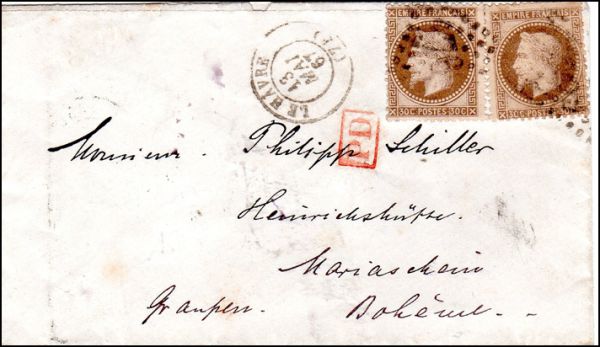 EMPIRE FRANÇAIS EMPIRE FRANÇAIS
30C. POSTES 30C. 30C. POSTES 30C
LE HAVRE (74)
13
MAI
67
PD
Monsieur. Philipp Schiller
Heinrichshütte.
Mariaschein
Graupen. Bohême.